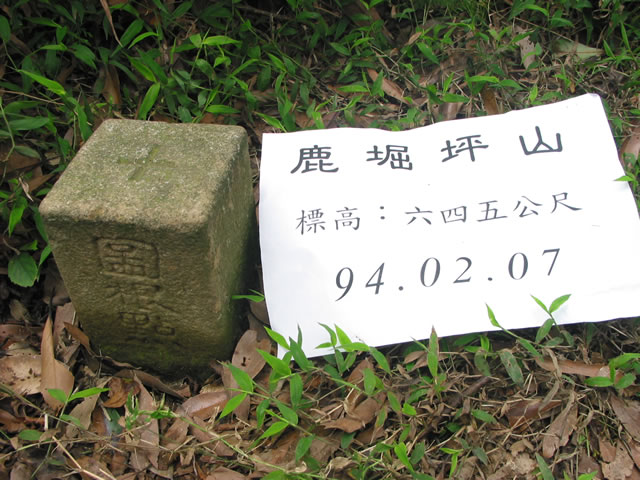 圖根點
鹿堀坪山
標高：六四五公尺
94.02.07